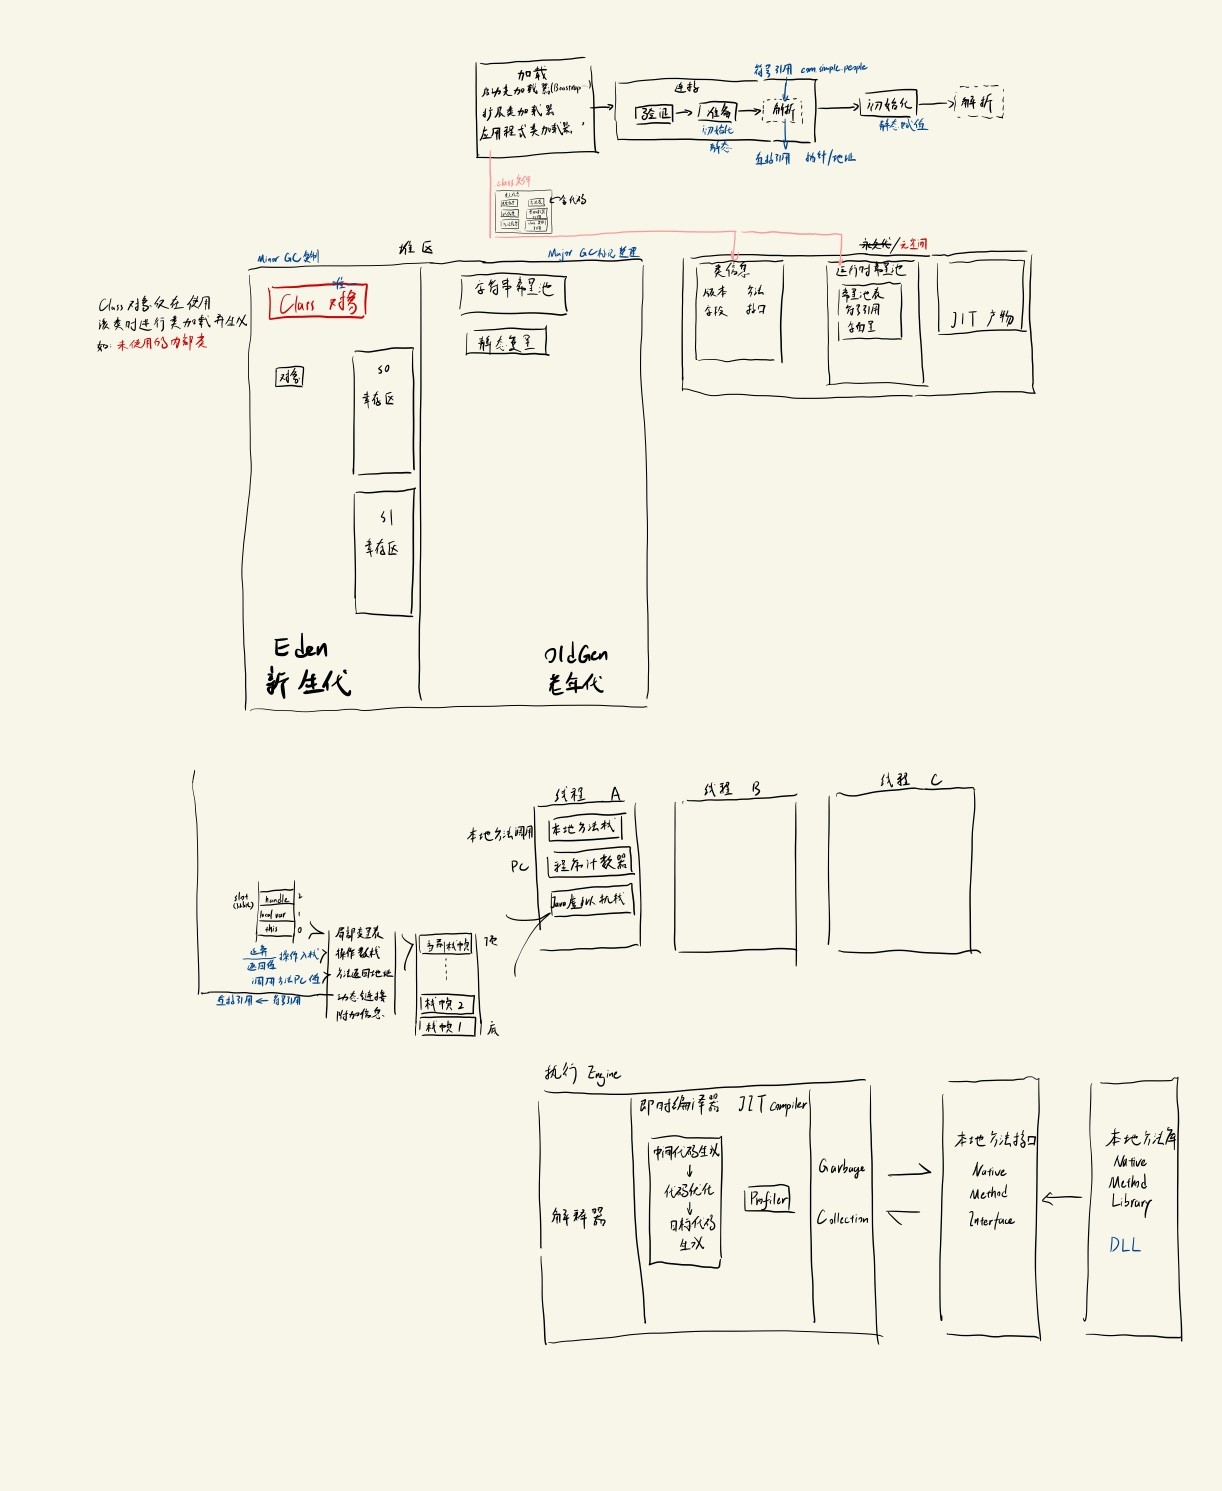 加载
启动类加载器(Boostrap...)
扩展类加载器
应用程式类加载器
连接
验证
准备
初始化
静态
符号引用 com.simple.people
解析
直接引用 指针/地址
初始化
静态赋值
解析
class文件
字代码
堆区
Minor GC 复制
Major GC 标记整理
Class 对象
Class 对象仅在使用
该类时进行类加载并生成
如: 未使用的内部类
对象
S0
幸存区
S1
幸存区
Eden
新生代
字符串常量池
静态变量
OldGen
老年代
永久代/元空间
类信息
版本 方法
字段 接口
运行时常量池
常量池表
符号引用
字面量
JIT 产物
线程 A
本地方法调用
本地方法栈
PC
程序计数器
Java虚拟机栈
线程 B
线程 C
slot
(32bit)
handle 2
local var 1
this 0
运算
返回值
操作入栈
调用方法PC值
直接引用 ← 符号引用
局部变量表
操作数栈
方法返回地址
动态链接
附加信息
当前栈帧
顶
栈帧 2
栈帧 1
底
执行 Engine
解释器
即时编译器 JIT Compiler
中间代码生成
代码优化
目标代码
生成
Profiler
Garbage
Collection
本地方法接口
Native
Method
Interface
本地方法库
Native
Method
Library
DLL